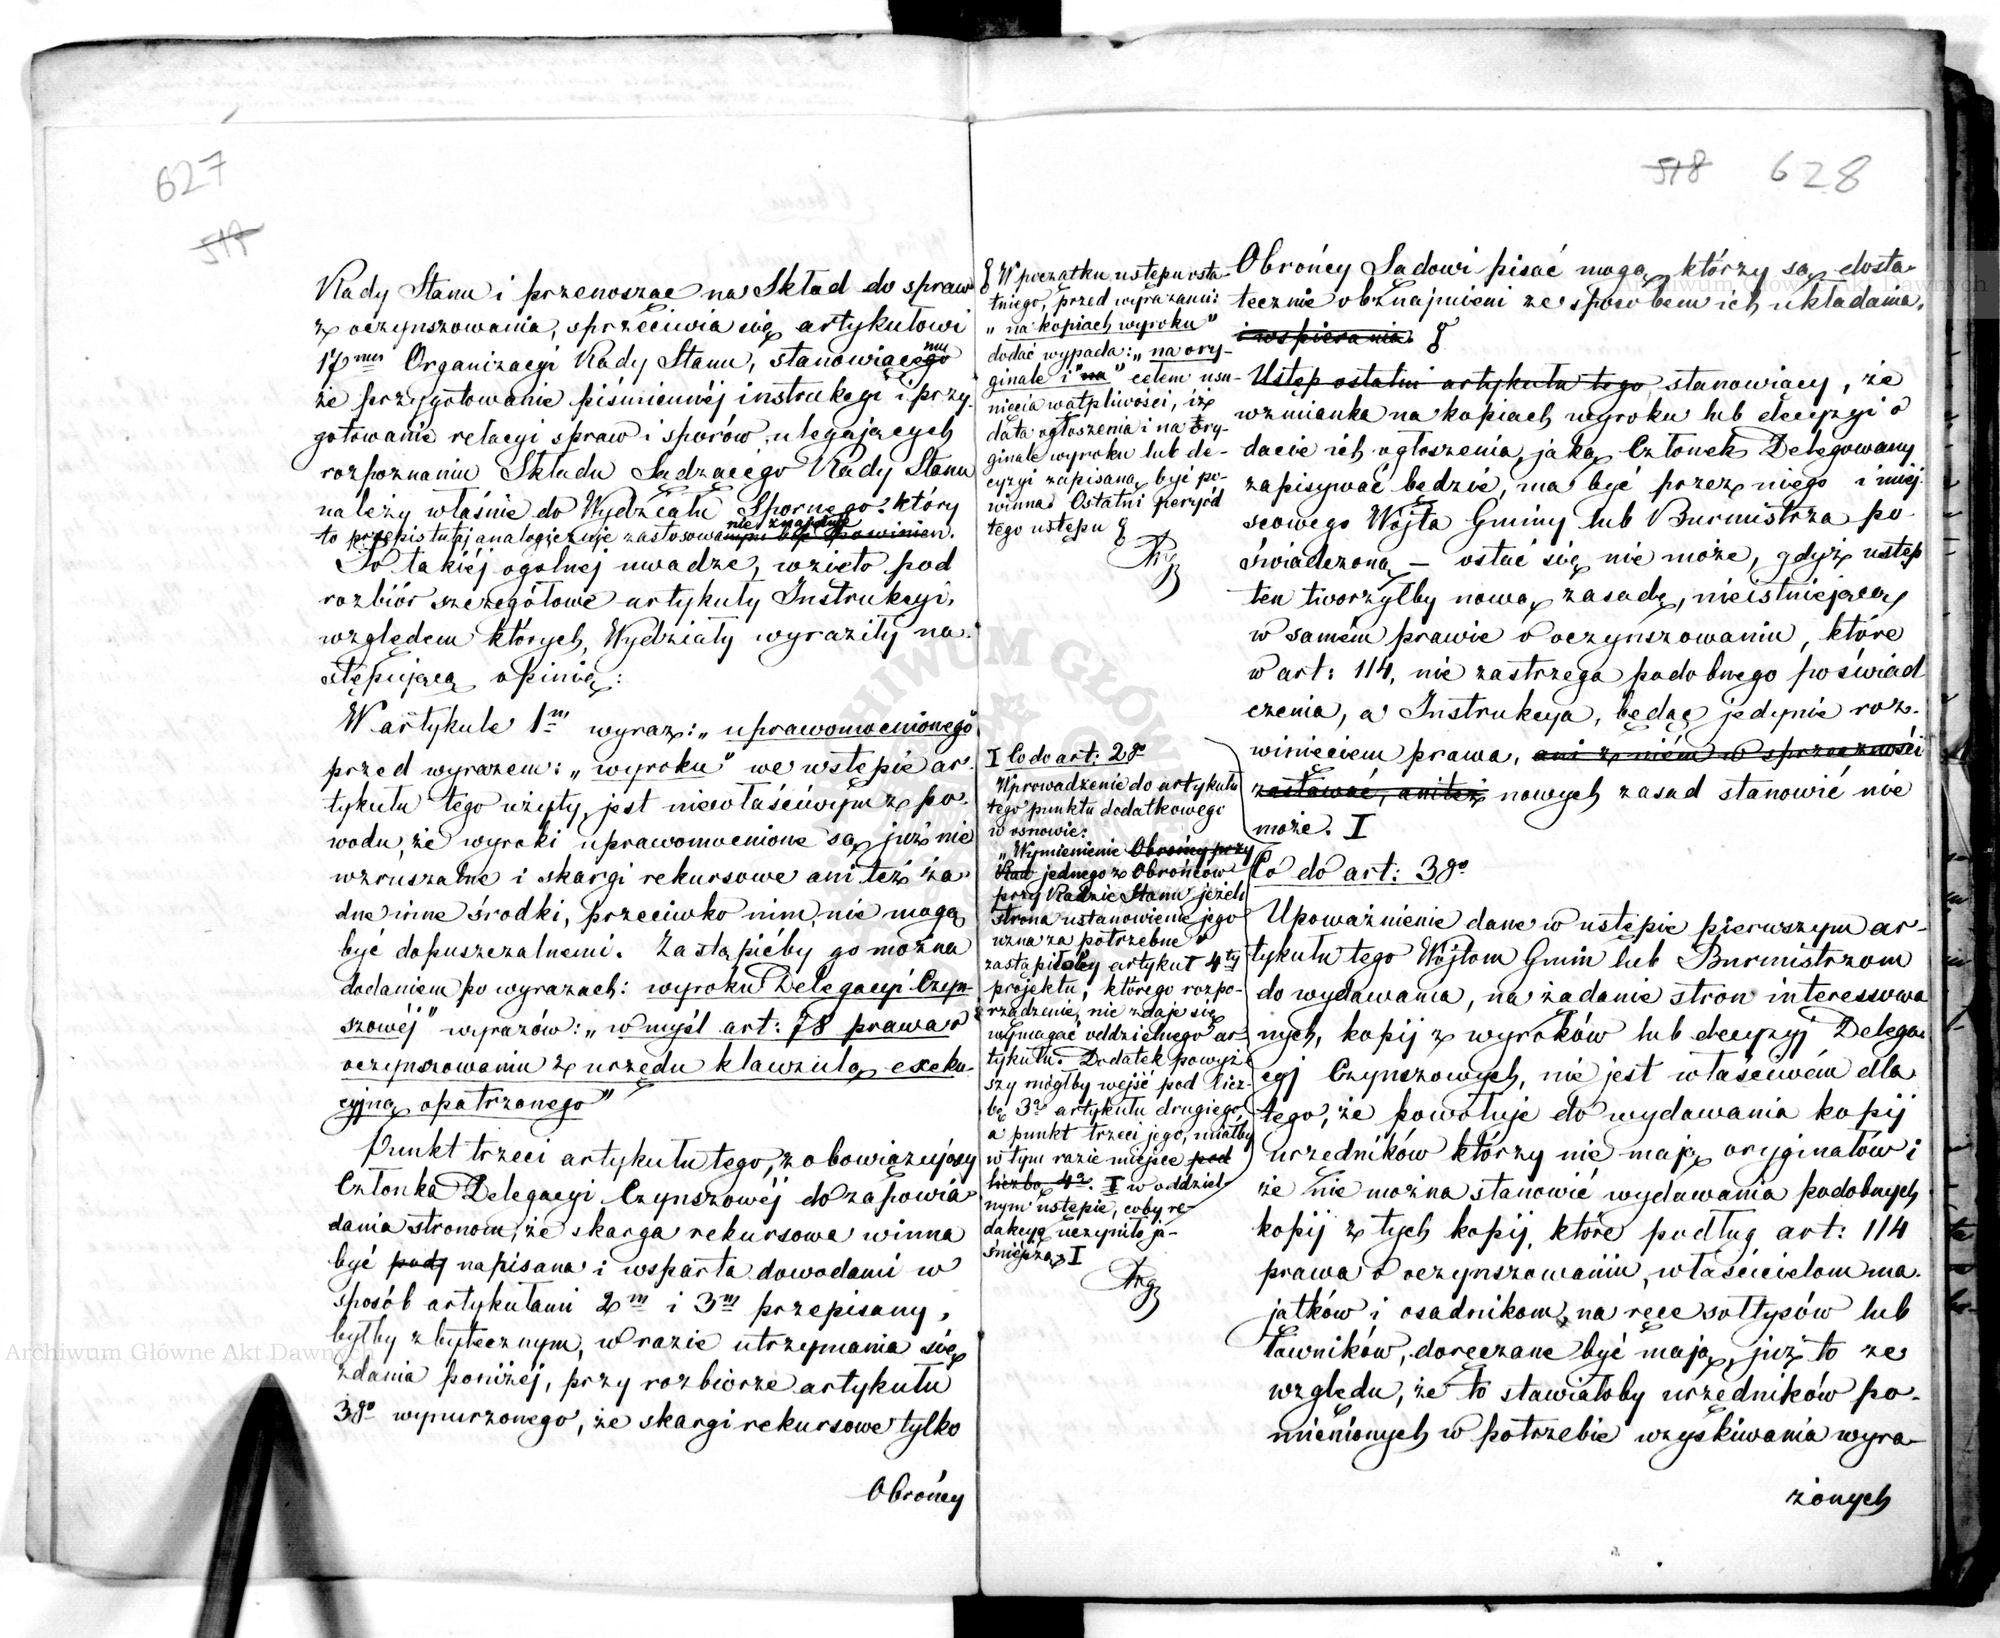 627
517
Rady Stanu i przenosząc na Skład do spraw
z oczynszowania, sprzeciwia się artykułowi
17mu Organizacyi Rady Stanu, stanowiącemu
że przygotowanie piśmiennéj instrukcyi i przy-
gotowanie relacyi spraw i sporów, ulegających
rozpoznaniu Składu Sądzącego Rady Stanu
należy właśnie do Wydziału Spornego: który
to przepis tutaj analogicznie zastosowania nie znajduje.
Po takiéj ogólnej uwadze, wzięto pod
rozbiór szczegółowe artykuły Instrukcyi,
względem których, Wydziały wyraziły na-
stępującą opinią:
W artykule 1m wyraz: „uprawomocnionego"
przed wyrazem: „wyroku" we wstępie ar-
tykułu tego użyty, jest niewłaściwym z po-
wodu, że wyroki uprawomocnione są już nie
wzruszalne i skargi rekursowe ani też ża-
dne inne środki, przeciwko nim, nie mogą
być dopuszczalnemi. Zastąpićby go można
dodaniem po wyrazach: wyroku Delegacyi Czyn-
szowéj" wyrazów: „w myśl art: 78 prawa o
oczynszowaniu z urzędu klauzulą exeku-
cyjną opatrzonego"
Punkt trzeci artykułu tego, zobowiązujący
Członka Delegacyi Czynszowéj do zapowia-
dania stronom, że skarga rekursowa winna
być napisana i wsparta dowodami w
sposób artykułami 2m i 3m przepisany,
byłby zbytecznym, w razie utrzymania się
zdania poniżéj, przy rozbiorze artykułu
3go wynurzonego, że skargi rekursowe tylko
Obrońcy
518 628
W początku ustępu osta-
tniego, przed wyrazami:
„na kopiach wyroku"
dodać wypada: „na ory-
ginale i na" celem usu-
nięcia wątpliwości, iż
data ogłoszenia i na ory-
ginale wyroku lub de-
cyzyi zapisaną być po-
winna. Ostatni peryód
tego ustępu
I Co do art: 2go
Wprowadzenie do artykułu
tego punktu dodatkowego
w osnowie:
„Wymienienie Obrońcy przy
Rad jednego z Obrońców
przy Radzie Stanu jeżeli
strona ustanowienie jego
uzna za potrzebne"
zastąpiłoby artykuł 4ty
projektu, którego rozpo-
rządzenie, nie zdaje się
wymagać oddzielnego ar-
tykułu. Dodatek powyż-
szy mógłby wejść pod licz-
bę 3ą artykułu drugiego,
a punkt trzeci jego, miałby
w tym razie miejsce pod
liczbą 4ą. I w oddziel-
nym ustępie, coby re-
dakcyę uczyniło ja-
śniejszą I
Obrońcy Sądowi pisać mogą, którzy są dosta-
tecznie obznajmieni ze sposobem ich układania,
i wspierania.
Ustęp ostatni artykułu tego stanowiący, że
wzmianka na kopiach wyroku lub decyzyi o
dacie ich ogłoszenia, jaką Członek Delegowany
zapisywać będzie, ma być przez niego i miej-
scowego Wójta Gminy lub Burmistrza po-
świadczoną – ostać się nie może, gdyż ustęp
ten tworzyłby nową zasadę, nieistniejącą
w samém prawie o oczynszowaniu, które
w art: 114, nie zastrzega podobnego poświad
czenia, a Instrukcya, będąc jedynie roz-
winięciem prawa, ani z niém w sprzeczności
zostawać, ani też nowych zasad stanowić nie
może. I
Co do art: 3go
Upoważnienie dane w ustępie pierwszym ar-
tykułu tego Wójtom Gmin lub Burmistrzom
do wydawania, na żądanie stron interessowa-
nych, kopij z wyroków lub decyzyj Delega-
cyj Czynszowych, nie jest właściwém dla
tego, że powołuje do wydawania kopij
urzędników którzy nie mają oryginałów i
że nie można stanowić wydawania podobnych
kopij z tych kopij, które podług art: 114
prawa o oczynszowaniu, właścicielom ma-
jątków i osadnikom, na ręce sołtysów lub
ławników, doręczane być mają, już to ze
względu, że to stawiałoby urzędników po-
mienionych w potrzebie wzyskiwania wyra-
żonych
Archiwum Główne Akt Dawnych
Archiwum Główne Akt Dawnych